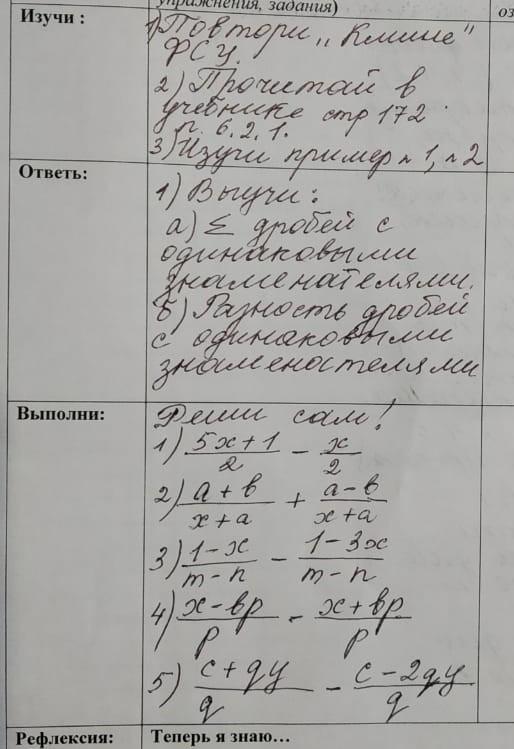 упражнения, задания)
оз
Изучи :
1) Повтори „Клише"
ФСУ.
2) Прочитай в
учебнике стр 172
п. 6.2.1.
3) Изучи пример №1, №2
Ответь:
1) Выучи:
а) Σ дробей с
одинаковыми
знаменателями.
б) Разность дробей
с одинаковыми
знаменателями
Выполни:
Реши сам!
1) (5x+1)/2 - x/2
2) (a+b)/(x+a) + (a-b)/(x+a)
3) (1-x)/(m-n) - (1-3x)/(m-n)
4) (x-bp)/p - (x+bp)/p
5) (c+qy)/q - (c-2qy)/q
Рефлексия:
Теперь я знаю…